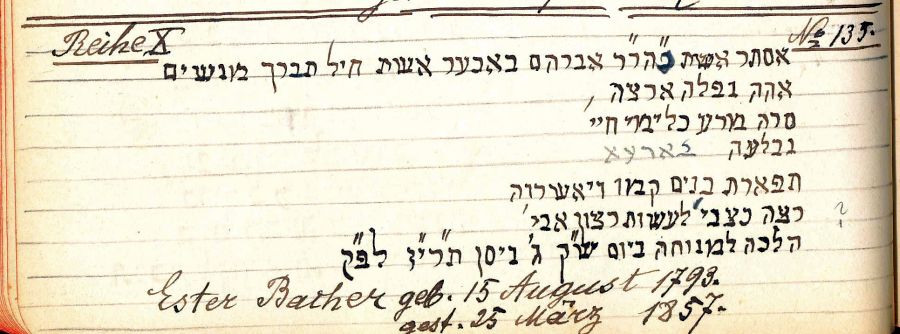 Reihe X № 135.
אסתר אשת כ"הר"ר אברהם באכער אשת חיל תברך מנשים
אהה נפלה ארצה,
סרה מרע כל ימי חיי'
נבלעה בארעא
תפארת בנים קמו ויאשרוה
רצה כצבי לעשות רצון אבי' ?
הלכה למנוחה ביום ש"ק ג' ניסן תרי"ז לפ"ק
Ester Bacher geb. 15 August 1793.
gest. 25 März 1857.